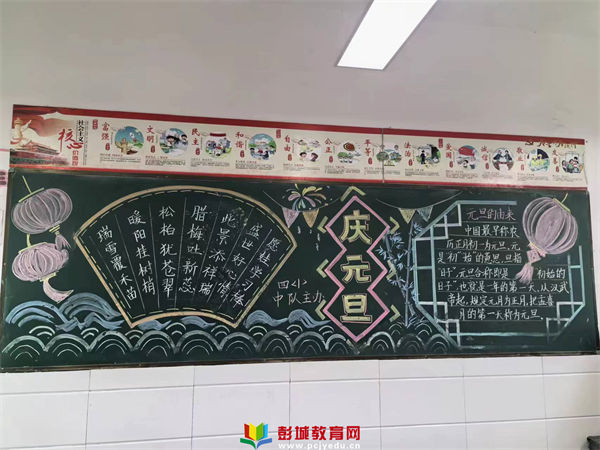 社会主义
核心
价值观
富强
文明
民主
和谐
自由
公正
平等
法治
爱国
诚信
敬业
友善
瑞雪覆禾苗
暖阳挂树梢
松柏犹苍翠
腊梅吐新蕊
此景添祥瑞
四小
中队主办
庆元旦
元旦的由来
中国最早称农
历正初一为元旦,元
是初"始"的意思,旦指
"日",元旦合称即是"初始的
日子",也就是一年的第一天。从汉武
帝起,规定元月为正月,把孟喜
月的第一天称为元旦。
彭城教育网
www.pcjyedu.cn